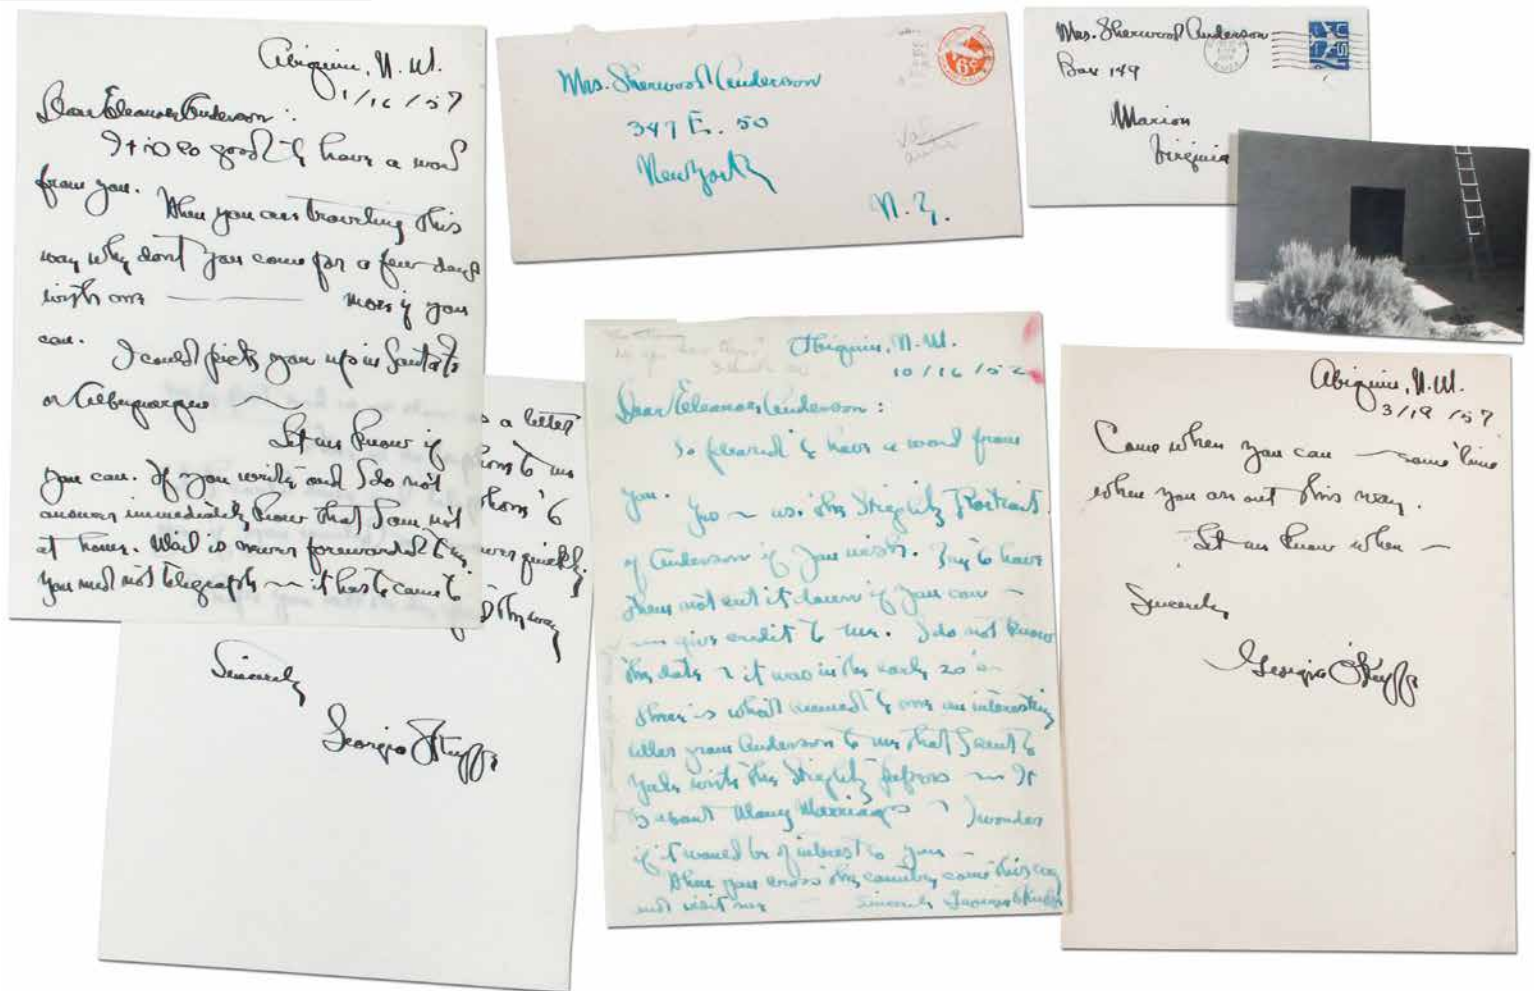 Abiquiu, N.M.
1/16/57
Dear Eleanor Anderson:
It is so good to have a word
from you. When you are traveling this
way why don't you come for a few days
with me —— more if you
can.
I could pick you up in Santa Fe
or Albuquerque ~
Let me know if
you can. If you write and I do not
answer immediately know that I am not
at home. Mail is never forwarded to me
You must not telegraph ~ it has to come to
a letter
to me
6
quickly.
this way
Sincerely
Georgia O'Keeffe
Mrs. Sherwood Anderson
347 E. 50
New York
N.Y.
6¢
Mrs. Sherwood Anderson
Box 149
Marion
Virginia
Abiquiu, N.M.
10/16/52
Dear Eleanor Anderson:
So pleased to have a word from
you. Yes ~ use the Stieglitz Portrait
of Anderson if you wish. Try to have
them not cut it down if you can —
— give credit to me. I do not know
the date ~ it was in the early 20's —
There is what seemed to me an interesting
letter from Anderson to me that I sent to
Yale with the Stieglitz papers — It
is about Many Marriages ~ I wonder
if it would be of interest to you —
When you cross the country come this way
and visit me — Sincerely Georgia O'Keeffe
Abiquiu, N.M.
3/19/57
Come when you can ~ some time
when you are out this way.
Let me know when ~
Sincerely
Georgia O'Keeffe